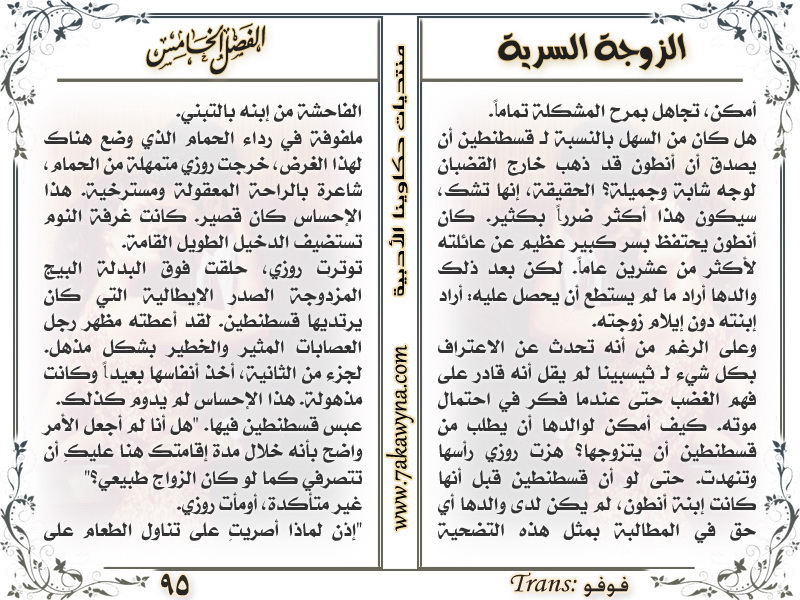 الزوجة السرية
أمكن، تجاهل بمرح المشكلة تماماً.
هل كان من السهل بالنسبة لـ قسطنطين أن
يصدق أن أنطون قد ذهب خارج القضبان
لوجه شابة وجميلة؟ الحقيقة، إنها تشك،
سيكون هذا أكثر ضرراً بكثير. كان
أنطون يحتفظ بسر كبير عظيم عن عائلته
لأكثر من عشرين عاماً. لكن بعد ذلك
والدها أراد ما لم يستطع أن يحصل عليه: أراد
إبنته دون إيلام زوجته.
وعلى الرغم من أنه تحدث عن الاعتراف
بكل شيء لـ ثيسبينا لم يقل أنه قادر على
فهم الغضب حتى عندما فكر في احتمال
موته. كيف أمكن لوالدها أن يطلب من
قسطنطين أن يتزوجها؟ هزت روزي رأسها
وتنهدت. حتى لو أن قسطنطين قبل أنها
كانت إبنة أنطون، لم يكن لدى والدها أي
حق في المطالبة بمثل هذه التضحية
Trans: فوفو
منتديات حكاوينا الأدبية
www.7akawyna.com
الفصل الخامس
الفاحشة من إبنه بالتبني.
ملفوفة في رداء الحمام الذي وضع هناك
لهذا الغرض، خرجت روزي متمهلة من الحمام،
شاعرة بالراحة المعقولة ومسترخية. هذا
الإحساس كان قصير. كانت غرفة النوم
تستضيف الدخيل الطويل القامة.
توترت روزي، حلقت فوق البدلة البيج
المزدوجة الصدر الإيطالية التي كان
يرتديها قسطنطين. لقد أعطته مظهر رجل
العصابات المثير والخطير بشكل مذهل.
لجزء من الثانية، أخذ أنفاسها بعيداً وكانت
مذهولة. هذا الإحساس لم يدوم كذلك.
عبس قسطنطين فيها. "هل أنا لم أجعل الأمر
واضح بأنه خلال مدة إقامتك هنا عليكِ أن
تتصرفي كما لو كان الزواج طبيعي؟"
غير متأكدة، أومأت روزي.
"إذن لماذا أصريتِ على تناول الطعام على
٩٥